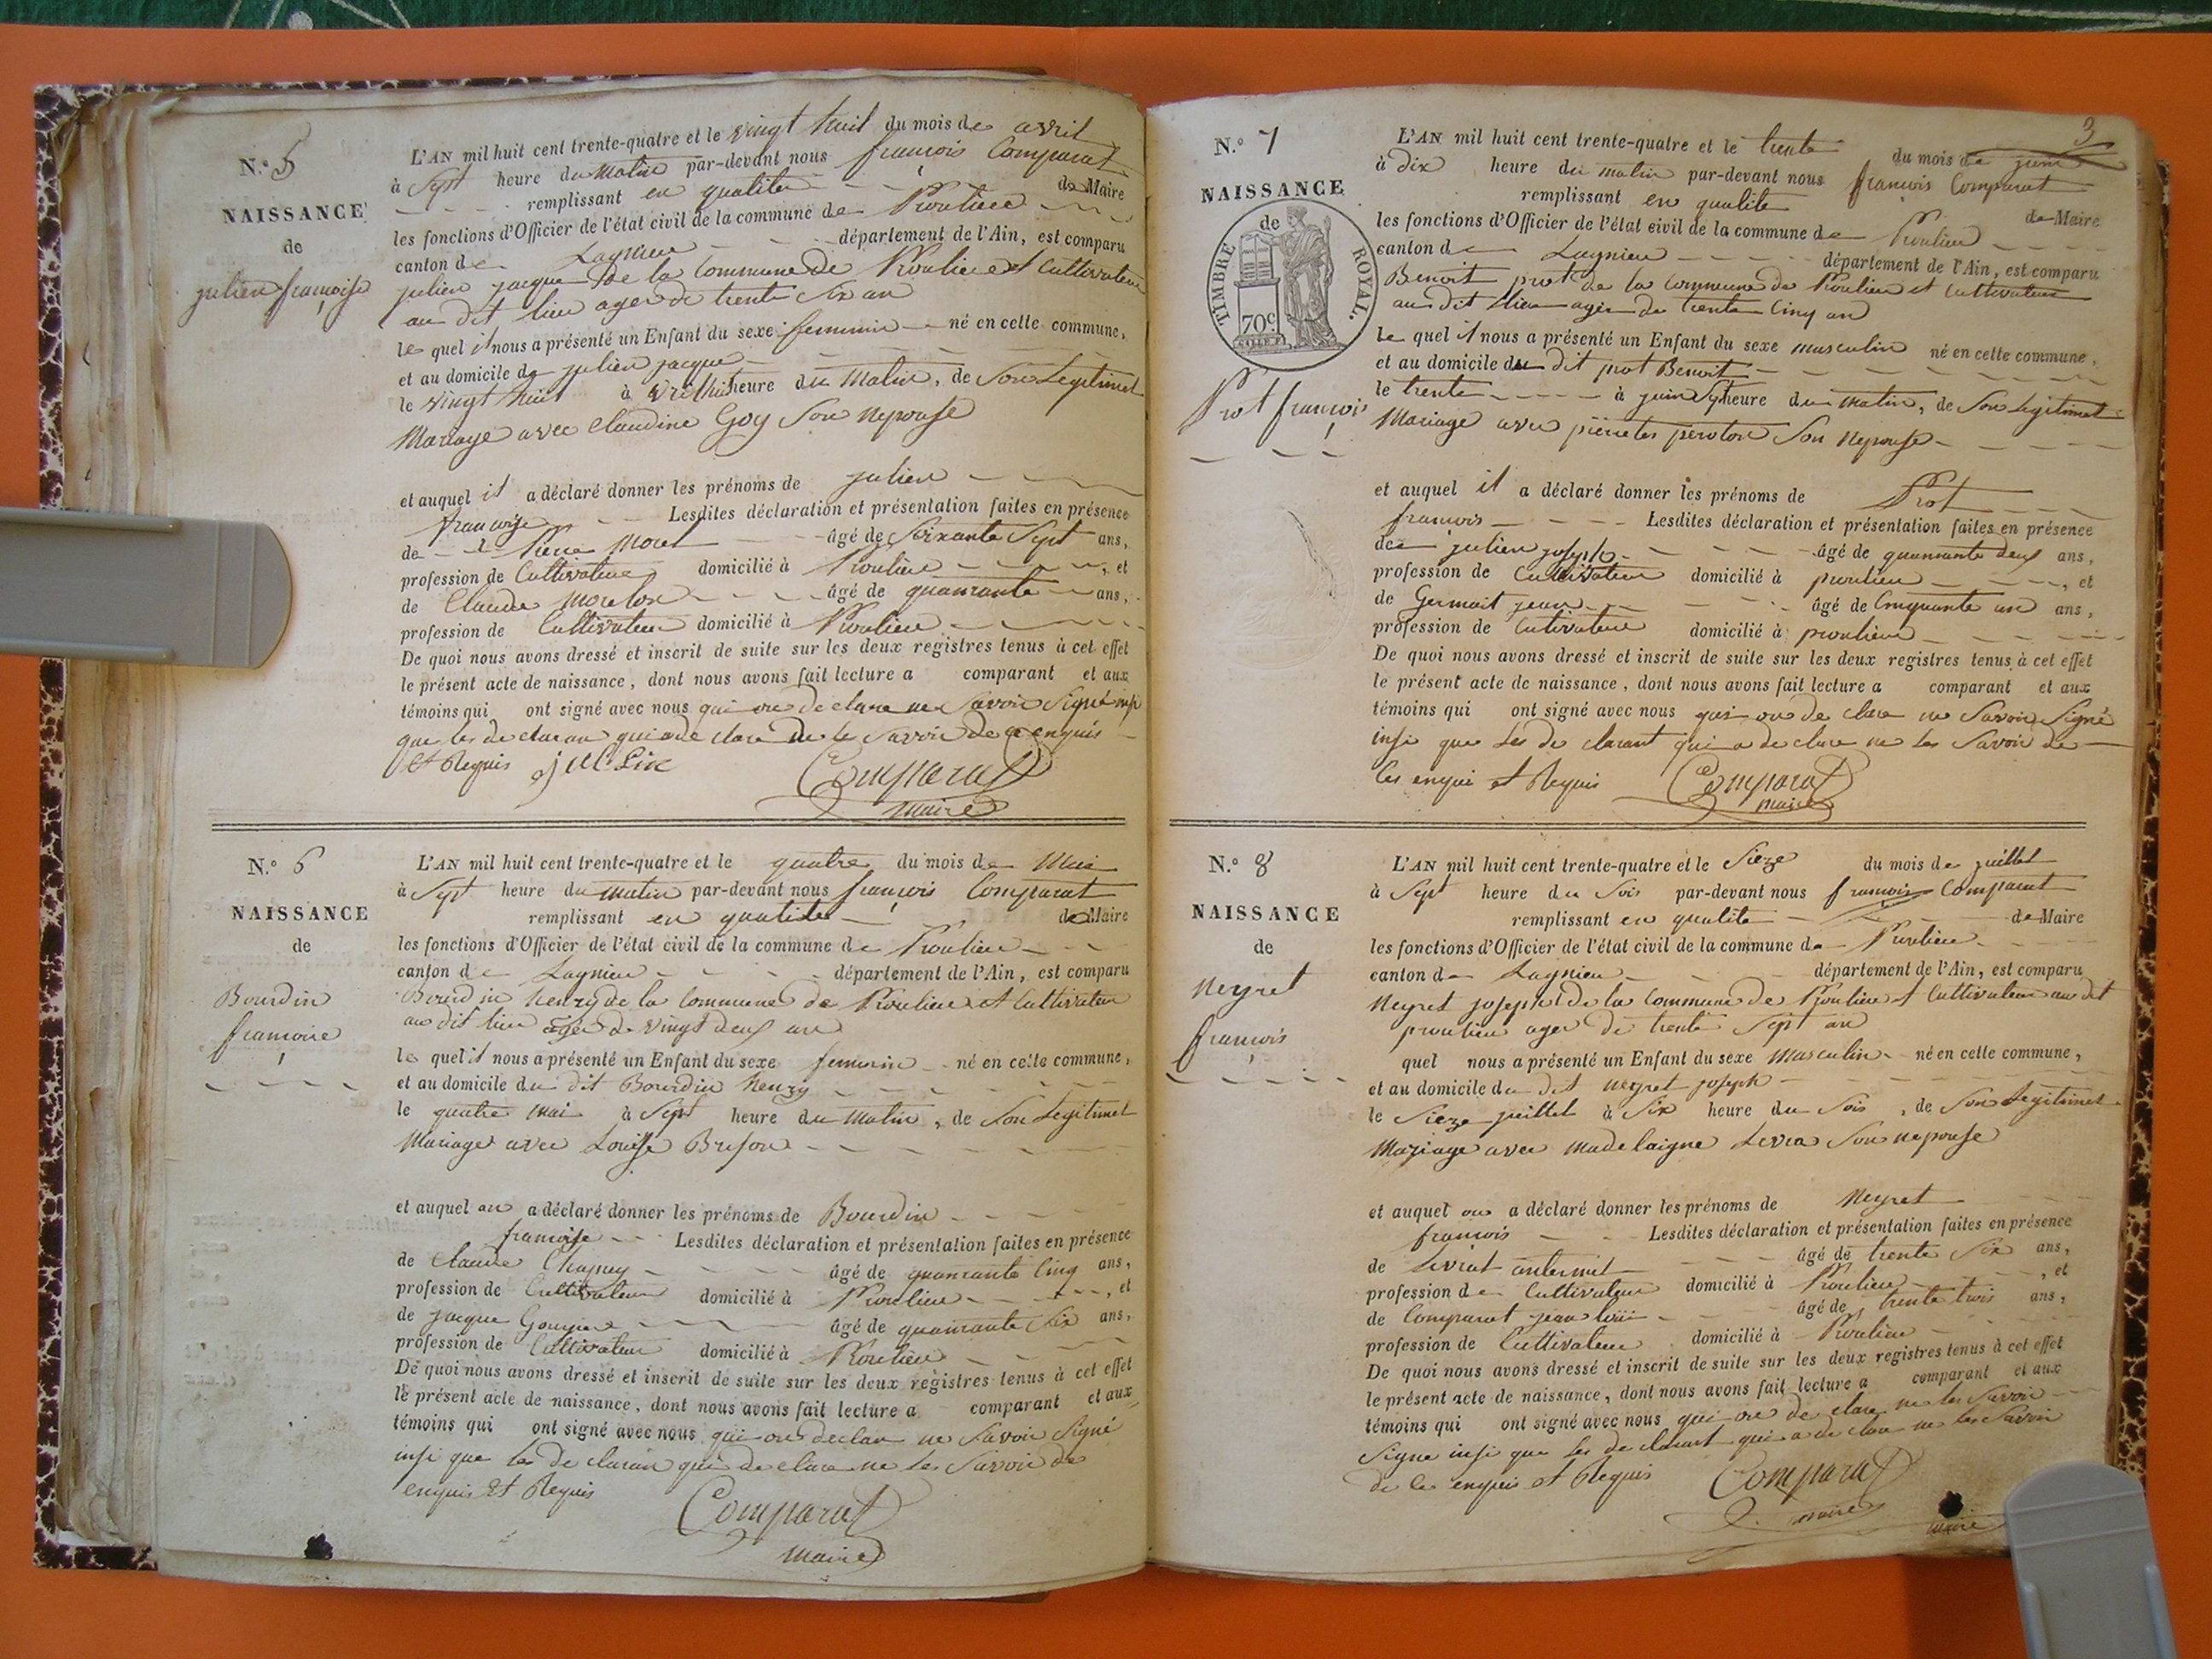 N.° 5
NAISSANCE
de
julien françoise
L'AN mil huit cent trente-quatre et le vingt huit du mois de avril
à Sept heure du matin par-devant nous françois Comparat
remplissant en qualite de Maire
les fonctions d'Officier de l'état civil de la commune de Proulieu
canton de Lagnieu département de l'Ain, est comparu
julien jacque de la Commune de Proulieu et Cultivateur
au dit lieu ager de trente Six an
le quel il nous a présenté un Enfant du sexe feminin né en cette commune,
et au domicile de julien jacque
le vingt huit à heure du Matin, de Son Legitimet
Mariage avec Claudine Goy Son nepouse
et auquel il a déclaré donner les prénoms de julien
françoise Lesdites déclaration et présentation faites en présence
de Pierre Morel âgé de Soixante Sept ans,
profession de Cultivateur domicilié à Proulieu, et
de Claude Morelon âgé de quarrante ans,
profession de Cultivateur domicilié à Proulieu
De quoi nous avons dressé et inscrit de suite sur les deux registres tenus à cet effet
le présent acte de naissance, dont nous avons fait lecture a comparant et aux
témoins qui ont signé avec nous qui on de clare ne Savoir Signé insi
que les de claran qui a de clare ne le Savoir de ce enquis
et Requis Comparat
maire
N.° 6
NAISSANCE
de
Bourdin
francoise
L'AN mil huit cent trente-quatre et le quatre du mois de Mai
à Sept heure du matin par-devant nous françois Comparat
remplissant en qualite de Maire
les fonctions d'Officier de l'état civil de la commune de Proulieu
canton de Lagnieu département de l'Ain, est comparu
Bourdin henry de la Commune de Proulieu et Cultivateur
au dit lieu ager de vingt deux an
le quel il nous a présenté un Enfant du sexe feminin né en cette commune,
et au domicile du dit Bourdin henry
le quatre mai à Sept heure du Matin, de Son Legitimet
Mariage avec Louise Brison
et auquel on a déclaré donner les prénoms de Bourdin
françoise Lesdites déclaration et présentation faites en présence
de Claude Chapuy âgé de quarrante Cinq ans,
profession de Cultivateur domicilié à Proulieu, et
de jacque âgé de quarrante Six ans,
profession de Cultivateur domicilié à Proulieu
De quoi nous avons dressé et inscrit de suite sur les deux registres tenus à cet effet
le présent acte de naissance, dont nous avons fait lecture a comparant et aux
témoins qui ont signé avec nous qui on declare ne Savoir Signé
insi que les De claran qui de clare ne les Savoir de
enquis Et Requis Comparat
maire
3
N.° 7
NAISSANCE
de
TIMBRE ROYAL.
70c
Prot françois
L'AN mil huit cent trente-quatre et le trente du mois de juin
à dix heure du matin par-devant nous françois Comparat
remplissant en qualite de Maire
les fonctions d'Officier de l'état civil de la commune de Proulieu
canton de Lagnieu département de l'Ain, est comparu
Benoit prot de la Commune de Proulieu et Cultivateur
au dit lieu ager de trente Cinq an
le quel il nous a présenté un Enfant du sexe masculin né en cette commune,
et au domicile du dit prot Benoit
le trente à juin Sept heure du matin, de Son Legitimet
Mariage avec Son nepouse
et auquel il a déclaré donner les prénoms de Prot
francois Lesdites déclaration et présentation faites en présence
de julien joseph âgé de quarrante deux ans,
profession de Cultivateur domicilié à proulieu, et
de Germait jean âgé de Cinquante un ans,
profession de Cutivateur domicilié à proulieu
De quoi nous avons dressé et inscrit de suite sur les deux registres tenus à cet effet
le présent acte de naissance, dont nous avons fait lecture a comparant et aux
témoins qui ont signé avec nous qui on de clare ne Savoir Signé
insi que les de clarant qui a de clare ne les Savoir de
Ces enqui et Requis Comparat
maire
N.° 8
NAISSANCE
de
Neyret
françois
L'AN mil huit cent trente-quatre et le Sieze du mois de juillet
à Sept heure du Soir par-devant nous françois Comparat
remplissant en qualite de Maire
les fonctions d'Officier de l'état civil de la commune de Proulieu
canton de Lagnieu département de l'Ain, est comparu
Neyret joseph de la Commune de Proulieu et Cultivateur au dit
proulieu ager de trente Sept an
quel nous a présenté un Enfant du sexe Masculin né en cette commune,
et au domicile du dit neyret joseph
le Sieze juillet à Six heure du Soir, de Son Legitimet
Mariage avec madelaigne Levra Son nepouse
et auquel on a déclaré donner les prénoms de Neyret
francois Lesdites déclaration et présentation faites en présence
de Livrat âgé de trente Six ans,
profession de Cultivateur domicilié à Proulieu, et
de Comparat jean âgé de trente trois ans,
profession de Cultivateur domicilié à Proulieu
De quoi nous avons dressé et inscrit de suite sur les deux registres tenus à cet effet
le présent acte de naissance, dont nous avons fait lecture a comparant et aux
témoins qui ont signé avec nous qui on de clare ne les Savoir
Signe insi que les de clarant qui a de clare ne les Savoir
de Ces enquis et Requis Comparat
maire
maire